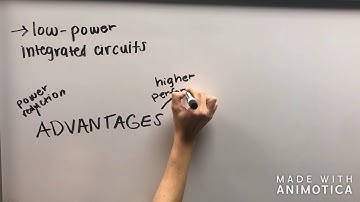 → low-power
integrated circuits
power
reduction
higher
perfor
ADVANTAGES
MADE WITH
ANIMOTICA